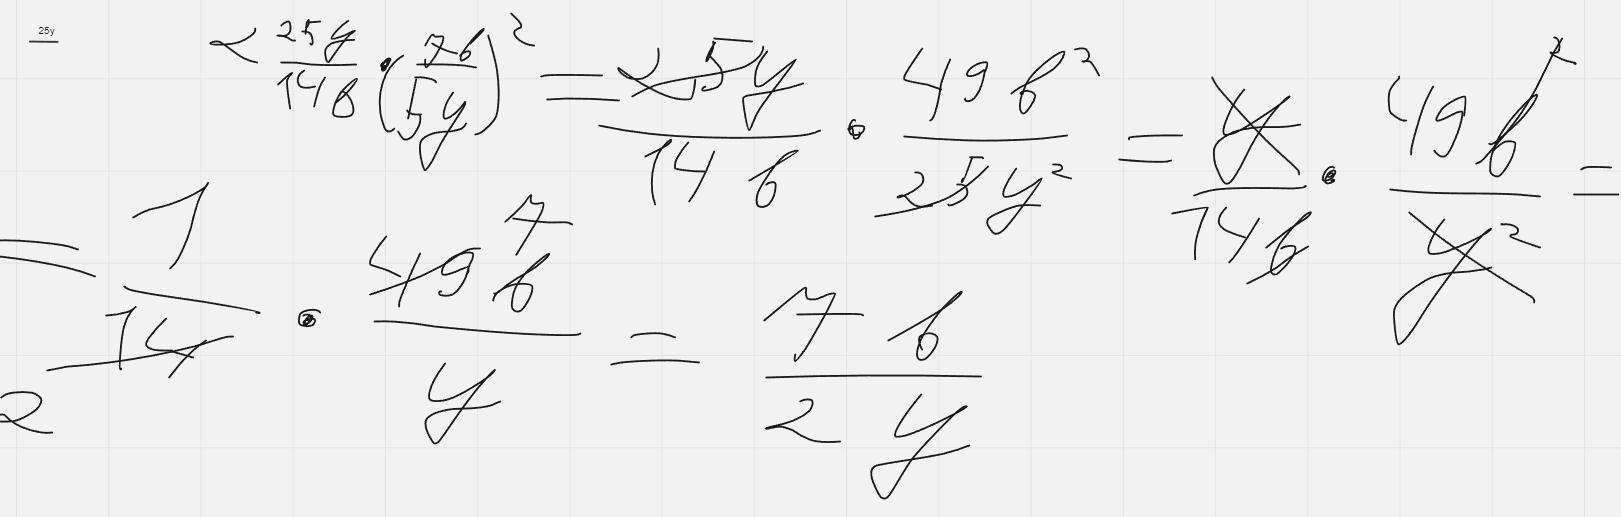 25y
< 25y/14b · (7b/5y)² = 25y/14b · 49b²/25y² = y/14b · 49b²/y² =
= 1/14 · 49b/y = 7b/2y
7
2